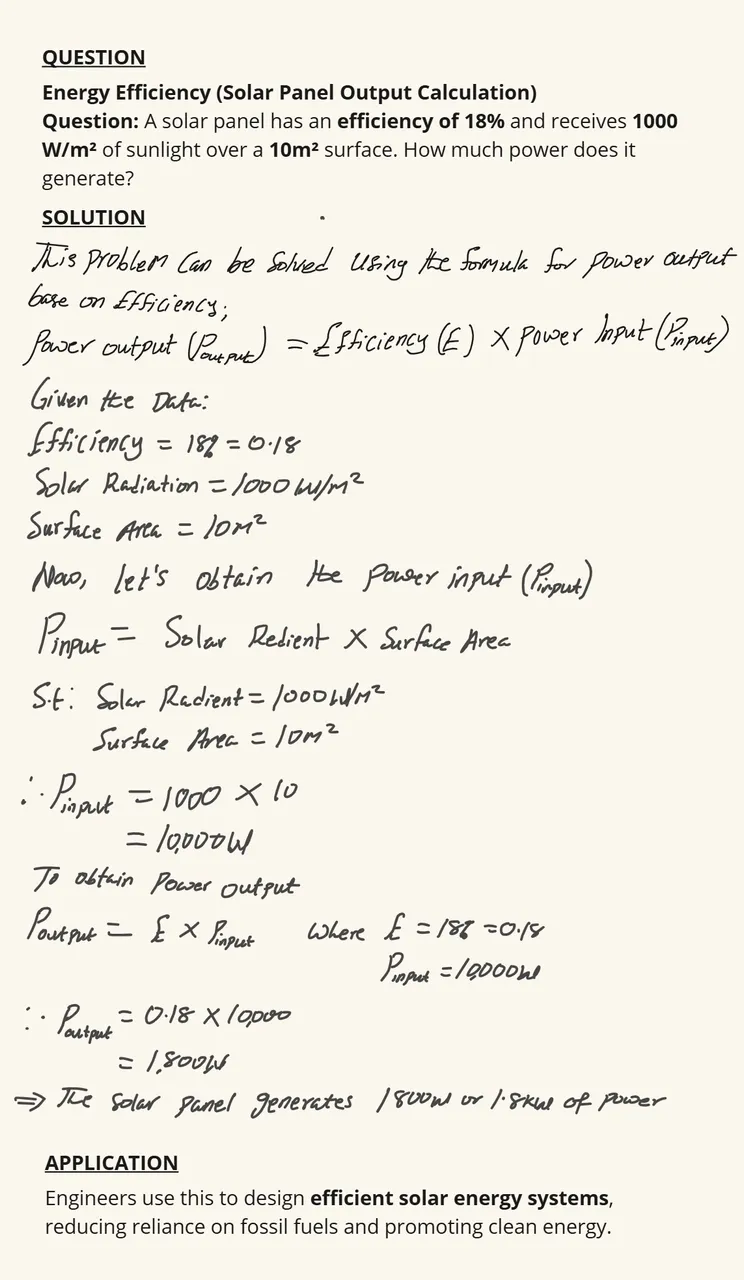 QUESTION
Energy Efficiency (Solar Panel Output Calculation)
Question: A solar panel has an efficiency of 18% and receives 1000
W/m² of sunlight over a 10m² surface. How much power does it
generate?
SOLUTION
This problem can be solved using the formula for power output
base on Efficiency;
Power output (Poutput) = Efficiency (E) × Power Input (Pinput)
Given the Data:
Efficiency = 18% = 0.18
Solar Radiation = 1000 W/m²
Surface Area = 10m²
Now, let's obtain the power input (Pinput)
Pinput = Solar Redient × Surface Area
S.t: Solar Radient = 1000W/m²
Surface Area = 10m²
∴ Pinput = 1000 × 10
= 10,000W
To obtain Power output
Poutput = E × Pinput where E = 18% = 0.18
Pinput = 10,000W
∴ Poutput = 0.18 × 10,000
= 1,800W
⇒ The solar panel generates 1800W or 1.8kW of power
APPLICATION
Engineers use this to design efficient solar energy systems,
reducing reliance on fossil fuels and promoting clean energy.